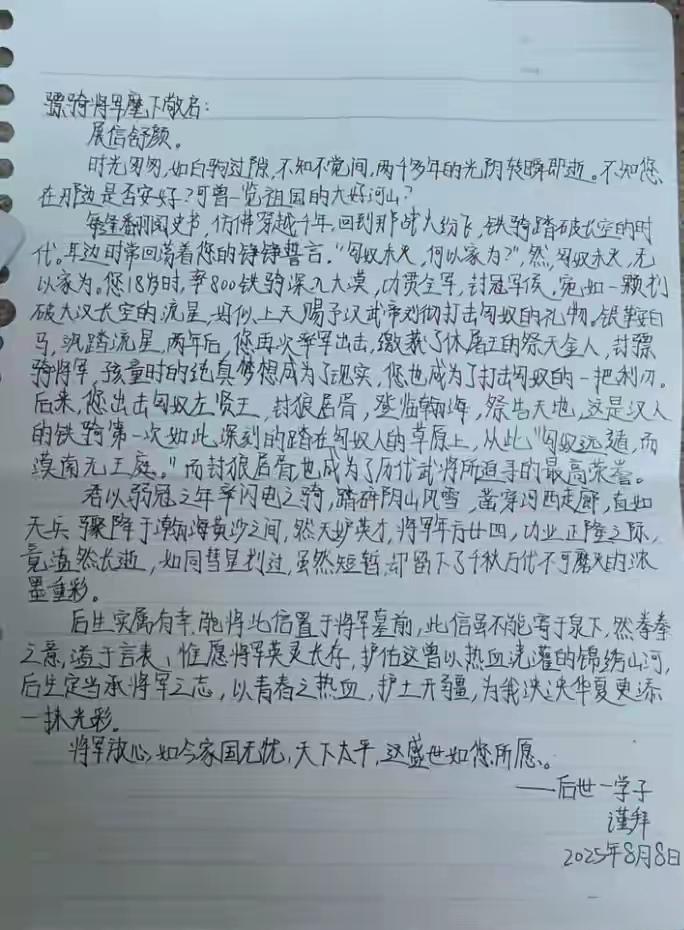 骠骑将军麾下敬启：
展信舒颜。
时光匆匆，如白驹过隙，不知不觉间，两千多年的光阴转瞬即逝。不知您
在那边是否安好？可曾一览祖国的大好河山？
每每翻阅史书，仿佛穿越千年，回到那战火纷飞，铁骑踏破长空的时
代。耳边时常回荡着您的铮铮誓言，“匈奴未灭，何以家为？”然，匈奴未灭，无
以家为。您18岁时，率800铁骑深入大漠，功贯全军，封冠军侯，宛如一颗划
破大汉长空的流星，好似上天赐予汉武帝刘彻打击匈奴的礼物。银鞍白
马，飒踏流星，两年后，您再次率军出击，缴获了休屠王的祭天金人，封骠
骑将军，孩童时的纯真梦想成为了现实，您也成为了打击匈奴的一把利刃。
后来，您出击匈奴左贤王，封狼居胥，登临翰海，祭告天地，这是汉人
的铁骑第一次如此深刻的踏在匈奴人的草原上，从此“匈奴远遁，而
漠南无王庭。”而封狼居胥也成为了历代武将所追寻的最高荣誉。
君以弱冠之年率闪电之骑，踏碎阴山风雪，凿穿河西走廊，直如
天兵骤降于瀚海黄沙之间，然天妒英才，将军年方廿四，功业正隆之际，
竟溘然长逝，如同彗星划过，虽然短暂，却留下了千秋万代不可磨灭的浓
墨重彩。
后生实属有幸，能将此信置于将军墓前，此信虽不能寄于泉下，然拳拳
之意，溢于言表，惟愿将军英灵长存，护佑这曾以热血浇灌的锦绣山河，
后生定当承将军之志，以青春之热血，护土开疆，为我泱泱华夏更添
一抹光彩。
将军放心，如今家国无忧，天下太平，这盛世如您所愿。
——后世一学子
谨拜
2025年8月8日